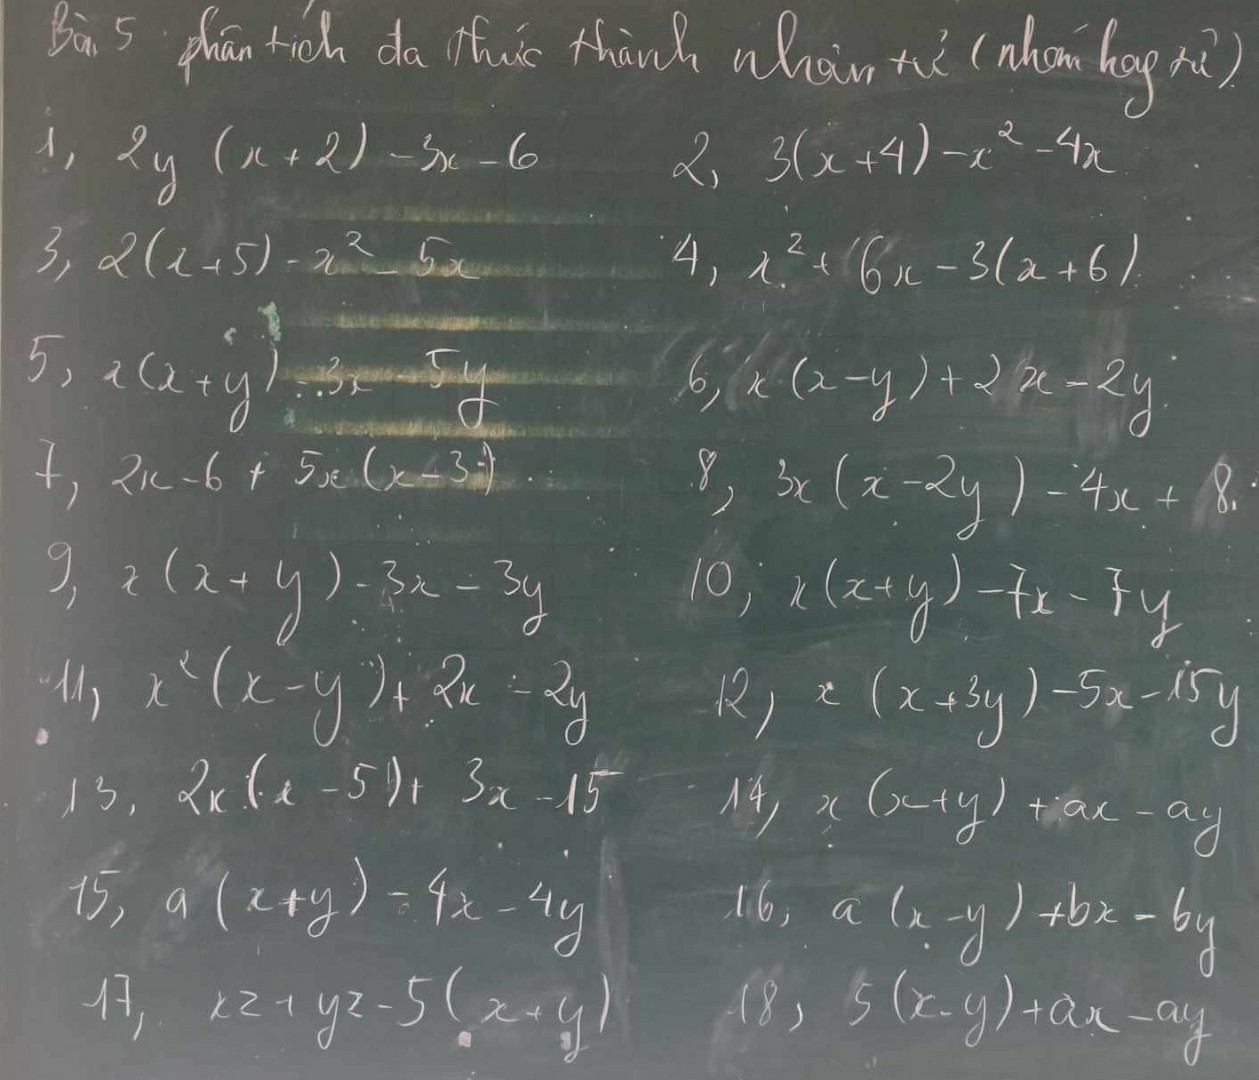 Bài 5 phân tích đa thức thành nhân tử (nhóm hạng tử)
1, 2y (x + 2) - 3x - 6 2, 3(x + 4) - x² - 4x
3, 2(x + 5) - x² - 5x 4, x² + 6x - 3(x + 6)
5, x(x + y) - 3x - 5y 6, x (x - y) + 2x - 2y
7, 2x - 6 + 5x (x - 3) 8, 3x (x - 2y) - 4x + 8
9, x(x + y) - 3x - 3y 10, x(x + y) - 7x - 7y
11, x² (x - y) + 2x - 2y 12, x (x + 3y) - 5x - 15y
13, 2x (x - 5) + 3x - 15 14, x (x + y) + ax - ay
15, a (x + y) - 4x - 4y 16, a (x - y) + bx - by
17, xz + yz - 5 (x + y) 18, 5 (x - y) + ax - ay